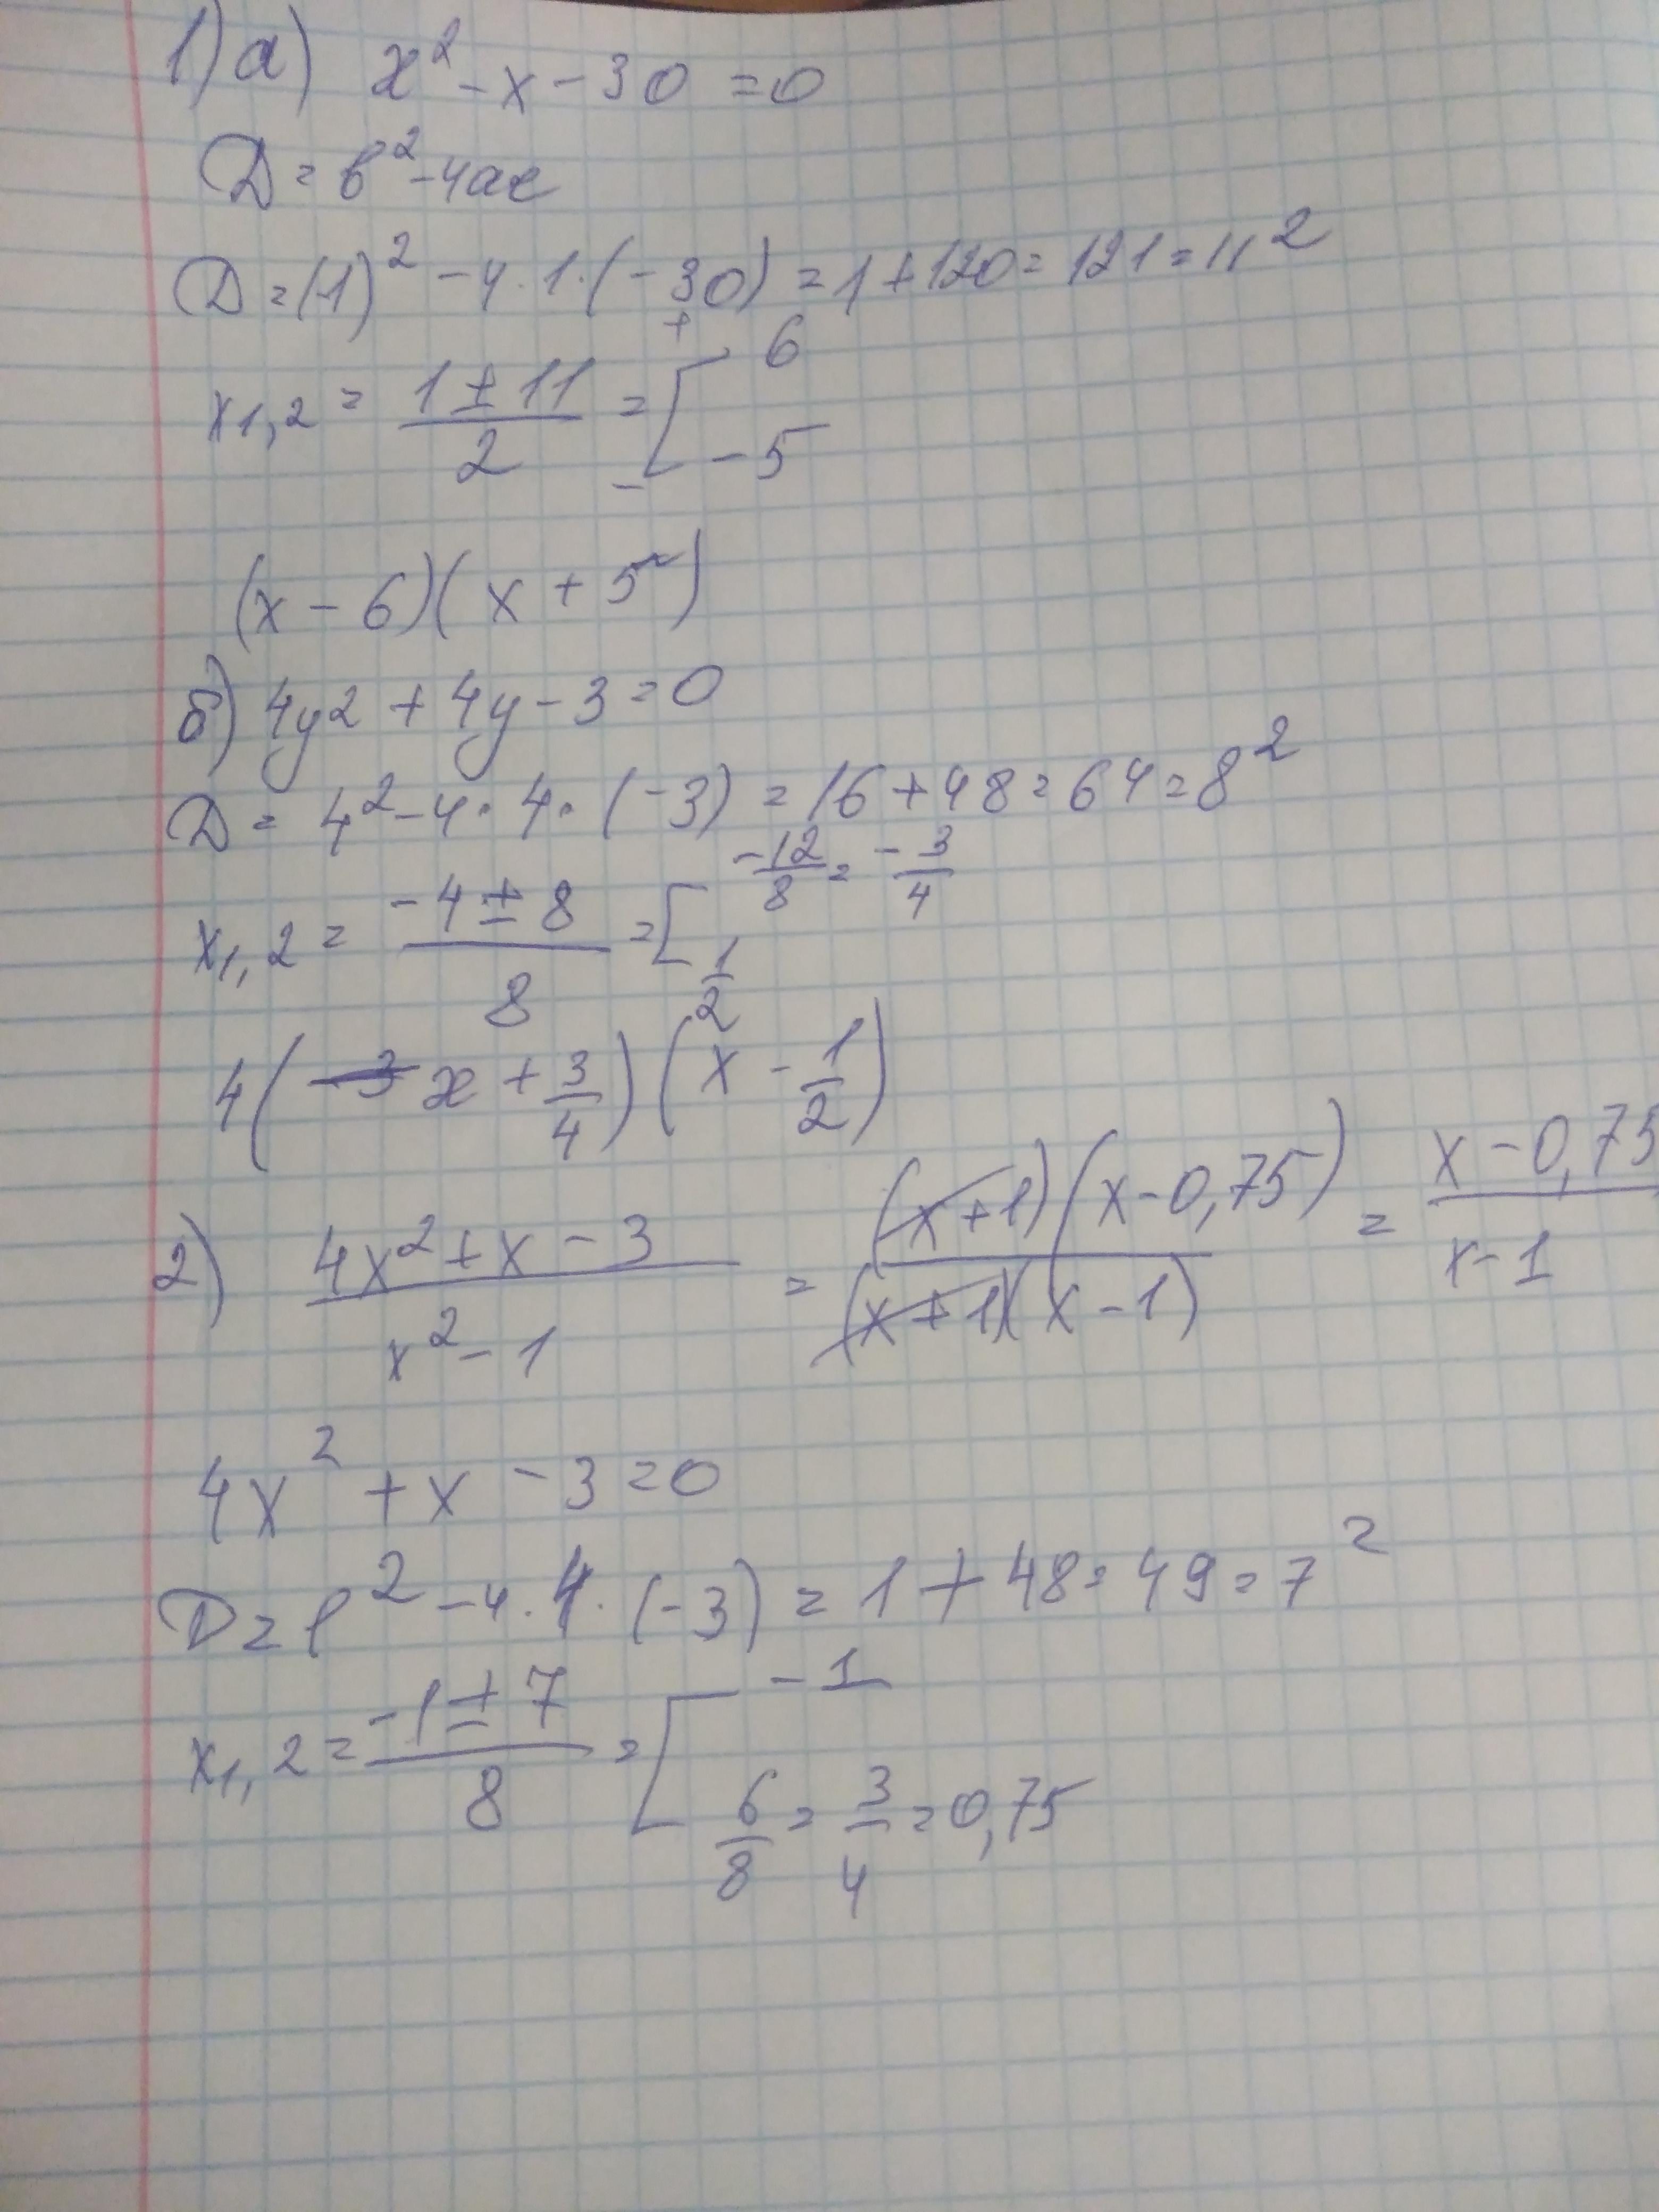 1) а) x² - x - 30 = 0
D = b² - 4ac
D = (-1)² - 4 · 1 · (-30) = 1 + 120 = 121 = 11²
x1,2 = (1 ± 11)/2 = [ + 6
- -5
(x - 6)(x + 5)
б) 4y2 + 4y - 3 = 0
D = 4² - 4 · 4 · (-3) = 16 + 48 = 64 = 8²
x1,2 = (-4 ± 8)/8 = [ -12/8 = -3/4
1/2
4(x + 3/4)(x - 1/2)
2) (4x² + x - 3)/(x² - 1) = ((x + 1)(x - 0,75))/((x + 1)(x - 1)) = (x - 0,75)/(x - 1)
4x² + x - 3 = 0
D = 1² - 4 · 4 · (-3) = 1 + 48 = 49 = 7²
x1,2 = (-1 ± 7)/8 = [ -1
6/8 = 3/4 = 0,75